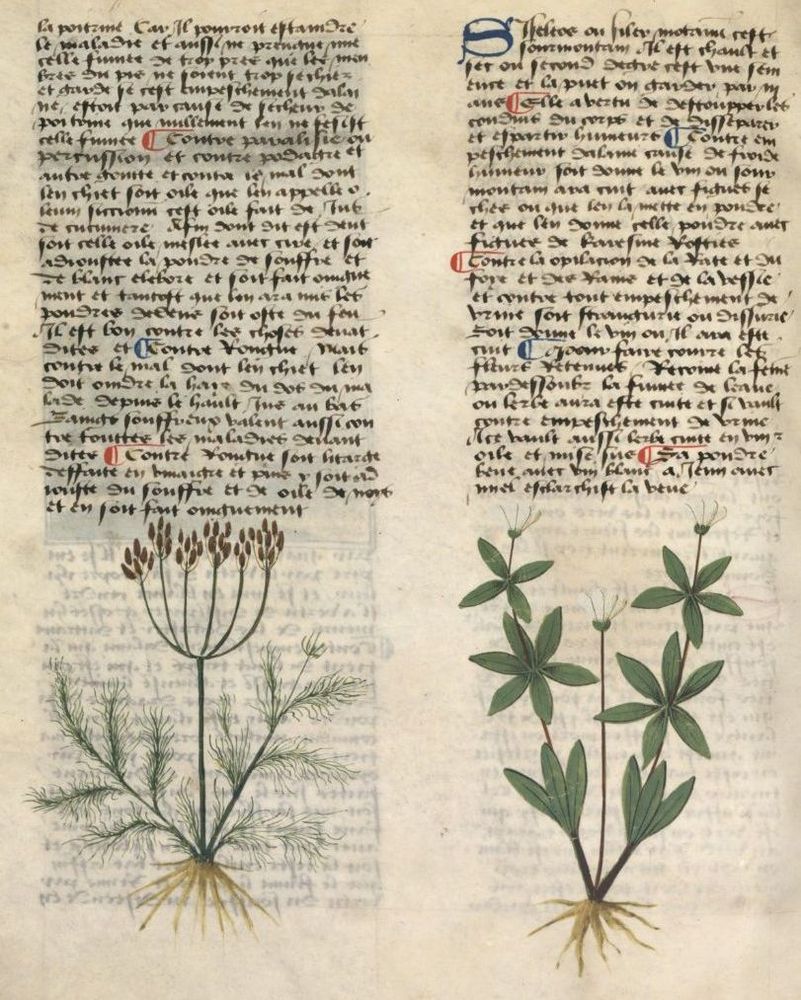 la poitrine Car Il pourroit estaindre
le maladie et aussi ne prengne mie
celle fumee de trop pres que les men
bres du pis ne soient trop sechiez
et garde se cest empeschement dalai
ne, estoit par cause de secheur de
poitrine que nullement len ne fesist
celle fumee Contre paralisie ou
percussion et contre podagre et
autre goutte et contre le mal dont
len chiet soit oile que len appelle o
leum cest oile fait de Jus
de cucumere Afin dont dit est dent
soit celle oile meslee auec cire et soit
adioustee la pouldre de souffre et
de blanc elebore et soit fait oingne
ment et tantost que len ara mis les
pouldres dedens soit oste du feu
Il est bon contre les choses deuat
dites et Contre Rongne Vault
contre le mal dont len chiet len
doit oindre la hair du dos du ma
lade depuis le hault Jus au bas
Baings souffreux valent aussi con
tre touttes les maladies deuant
dites Contre Rongne soit litarge
deffaite en vinaigre et puis y soit ad
iouste du souffre et de oile de nois
et en soit fait oingnement
Sileleos ou siler motain cest
sourmontain Il est chault et
sec ou second degre cest vne sem
ence et la puet on garder par iii
ans Elle a vertu de destoupper les
conduis du corps et de disseparer
et espartir humeurs Contre em
peschement dalaine cause de froide
humeur soit donne le vin ou sour
montain ara cuit auec figues se
ches ou que len la mette en pouldre
et que len donne celle pouldre auec
figues de karesme Rosties
Contre la opilacion de la Rate et du
foye et des Rains et de la vessie
et contre tout empeschement de
vrine soit strangurie ou dissurie
Soit donne le vin ou Il ara este
cuit pour faire courre les
fleurs Retenues Recoiue la feme
par dessoubz la fumee de leaue
ou lerbe aura este cuite et si vault
contre empeschement de vrine
Ace vault aussi lerbe cuite en vin
oile et mise sus La pouldre
beue auec vin blanc a Jeun auec
miel esclarchist la veue